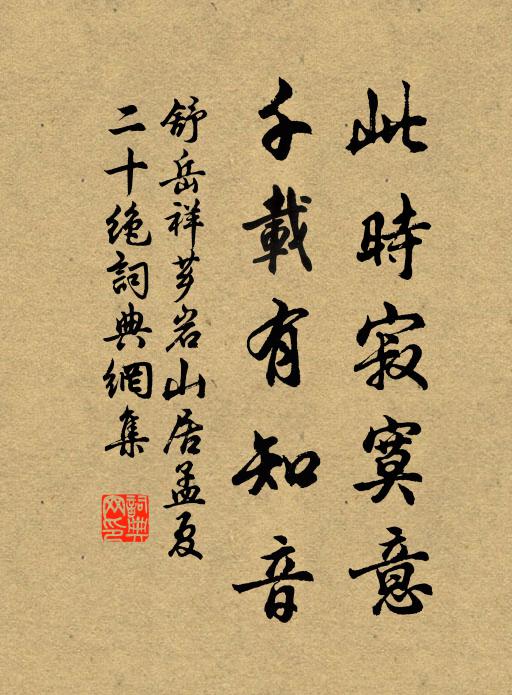 此時寂寞意
千載有知音
舒岳祥芗岩山居孟夏
二十绝詞典網集
詞典網印